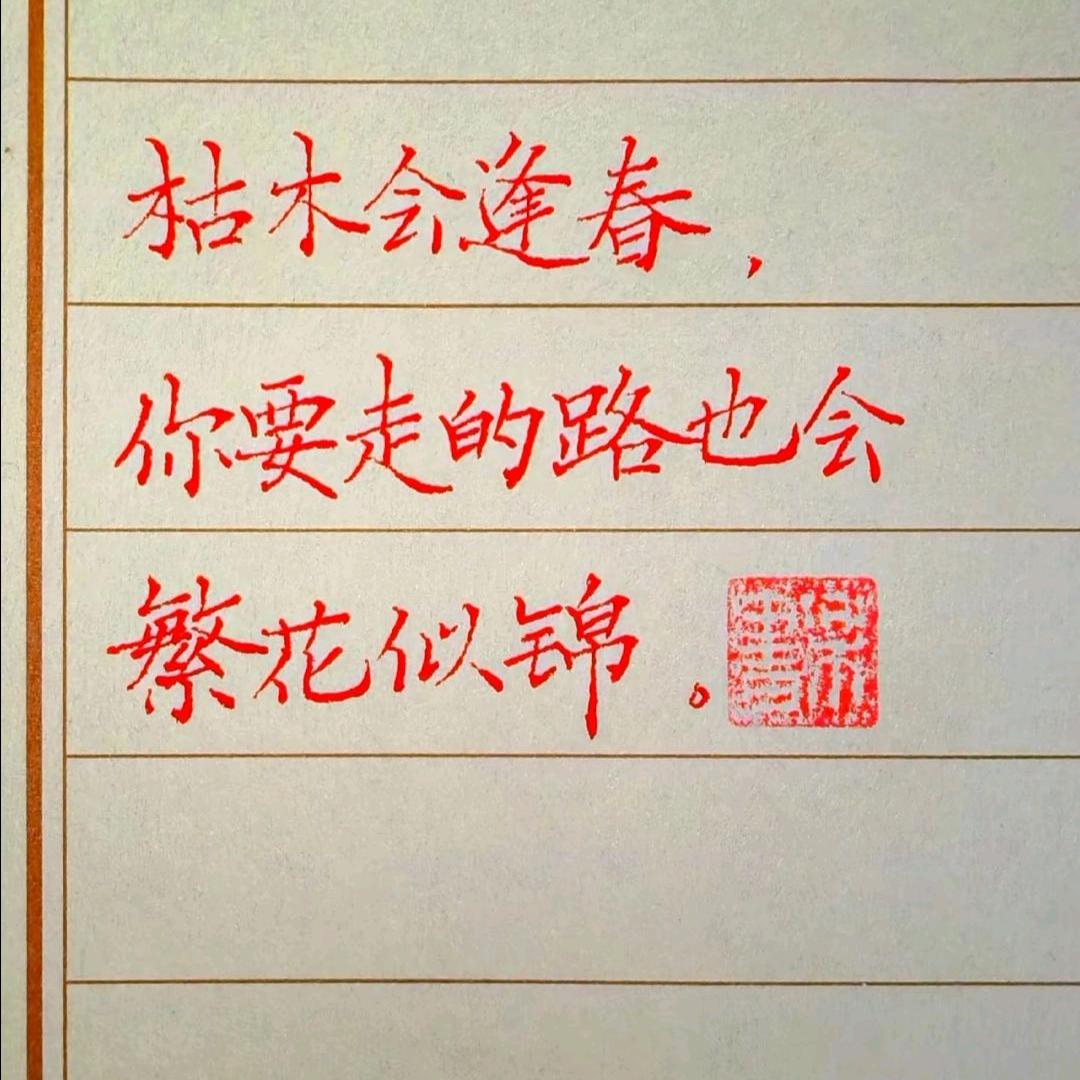 枯木会逢春，
你要走的路也会
繁花似锦。